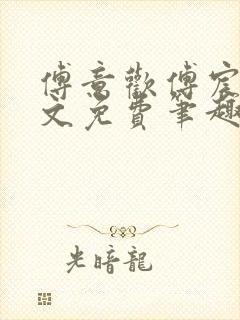 傅意歡傅宸
文免費筆趣
光暗龍